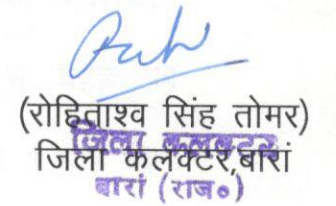 (रोहिताश्व सिंह तोमर)
जिला कलक्टर
जिला कलेक्टर,बारां
बारां (राज०)